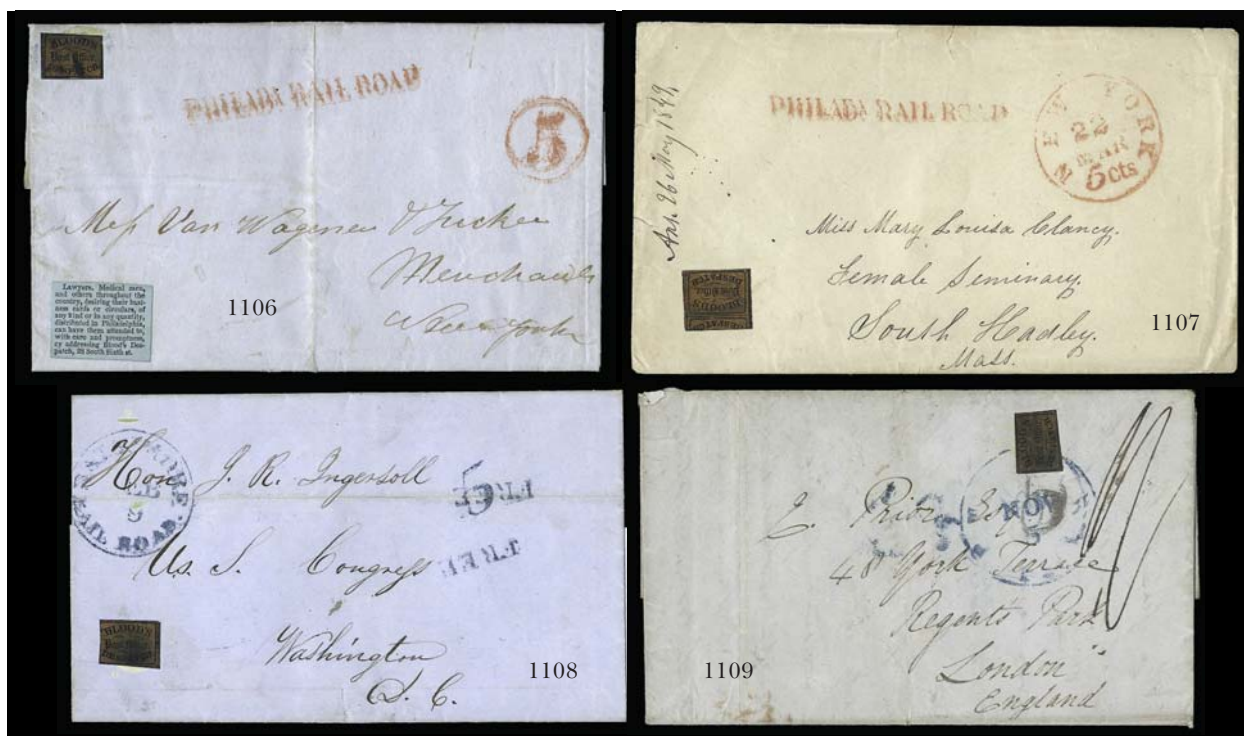 BLOOD'S
PHILADA RAIL ROAD
5
Mess Van Wagenen & Tucker
Merchants
New York
Lawyers, Medical men,
and others throughout the
country, desiring their busi-
ness cards or circulars, of
any kind or in any quantity,
distributed in Philadelphia,
can have them attended to,
with care and promptness,
by addressing Blood's Des-
patch, 28 South Sixth st.
1106
Ans. 26 May 1849.
PHILADA RAIL ROAD
NEW YORK
22
MAR
5 cts
Miss Mary Louisa Clancy.
Female Seminary.
South Hadley.
Mass.
BLOOD'S
1107
RAIL ROAD.
9
Hon J. R. Ingersoll
5
FREE
FREE
U. S. Congress
Washington
D. C.
BLOOD'S
1108
NOV
E. Prior Esq
48 York Terrace
Regents Park
London
England
1109